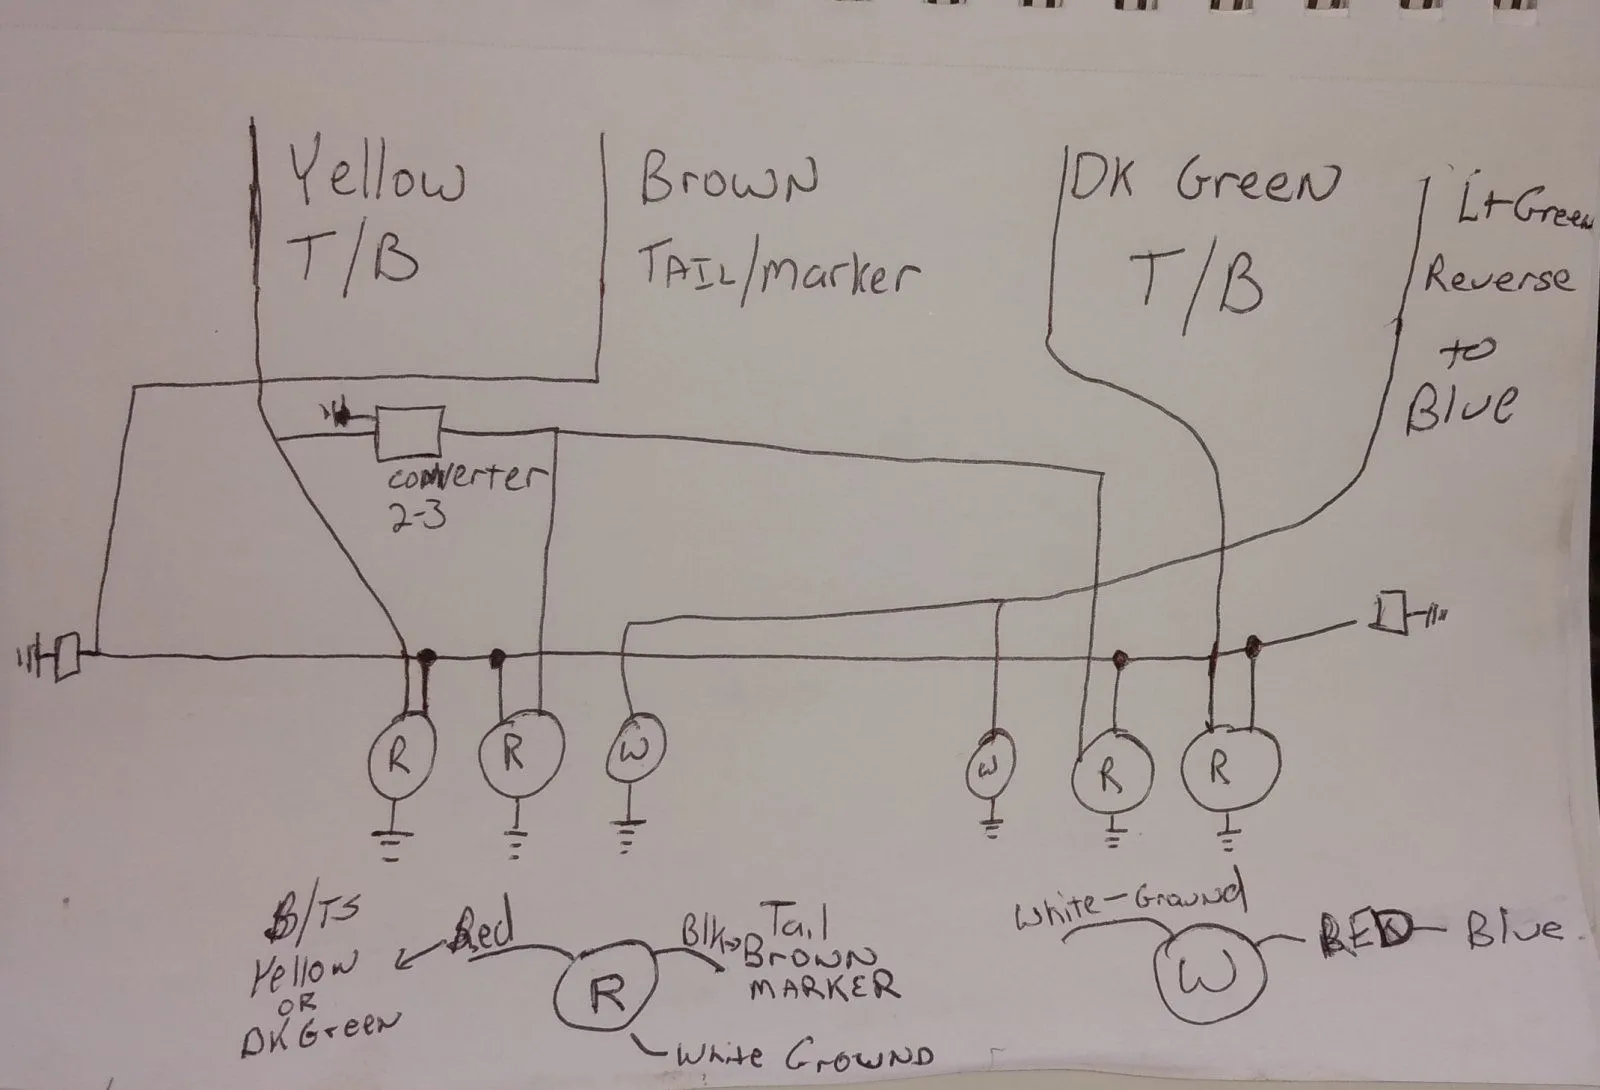 Yellow
T/B
Brown
TAIL/marker
DK Green
T/B
Lt Green
Reverse
to
Blue
converter
2-3
R
R
W
W
R
R
B/TS
Yellow
OR
DK Green
Red
R
Blk
Tail
Brown
MARKER
White Ground
White-Ground
W
RED - Blue